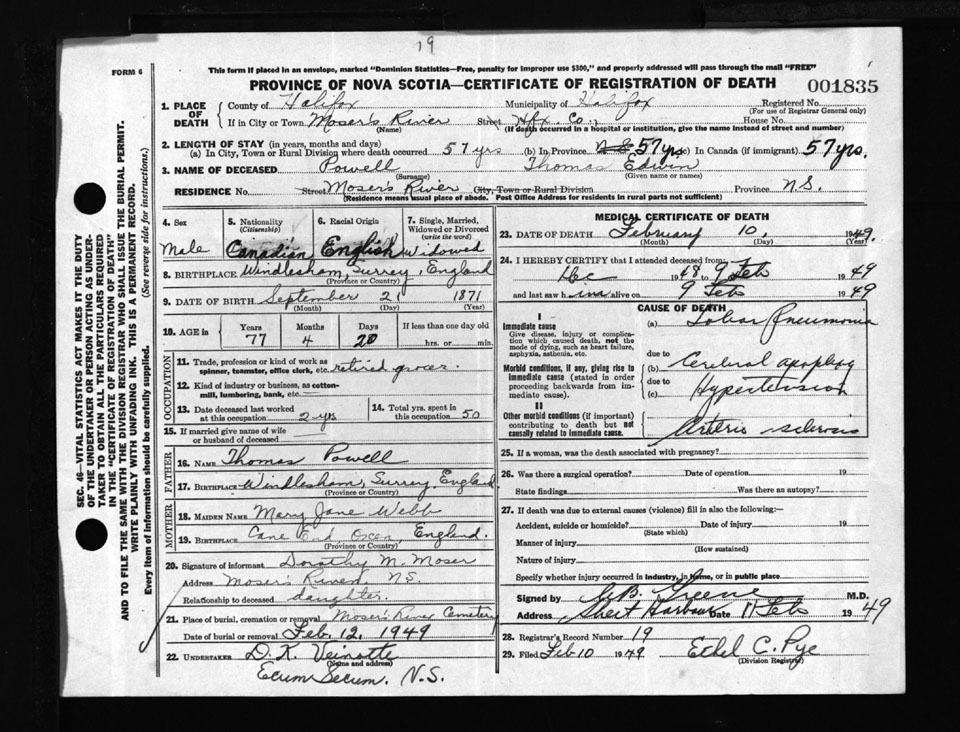 19
This form if placed in an envelope, marked "Dominion Statistics—Free, penalty for improper use $300," and properly addressed will pass through the mail "FREE"
FORM 6
PROVINCE OF NOVA SCOTIA—CERTIFICATE OF REGISTRATION OF DEATH
001835
SEC. 46—VITAL STATISTICS ACT MAKES IT THE DUTY
OF THE UNDERTAKER OR PERSON ACTING AS UNDER-
TAKER TO OBTAIN ALL THE PARTICULARS REQUIRED
IN THE "CERTIFICATE OF REGISTRATION OF DEATH"
AND TO FILE THE SAME WITH THE DIVISION REGISTRAR WHO SHALL ISSUE THE BURIAL PERMIT.
WRITE PLAINLY WITH UNFADING INK. THIS IS A PERMANENT RECORD.
Every item of information should be carefully supplied. (See reverse side for instructions.)
1. PLACE OF DEATH
County of Halifax Municipality of Halifax Registered No.
(For use of Registrar General only)
If in City or Town Moser's River Street Hfx. Co., House No.
(Name) (If death occurred in a hospital or institution, give the name instead of street and number)
2. LENGTH OF STAY (in years, months and days)
(a) In City, Town or Rural Division where death occurred 57 yrs (b) In Province N.S. 57 yrs (c) In Canada (if immigrant) 57 yrs.
3. NAME OF DECEASED Powell Thomas Edwin
(Surname) (Given name or names)
RESIDENCE No. Street Moser's River City, Town or Rural Division Province N.S.
(Residence means usual place of abode. Post Office Address for residents in rural parts not sufficient)
4. Sex
Male
5. Nationality
(Citizenship)
Canadian
6. Racial Origin
English
7. Single, Married,
Widowed or Divorced
(write the word)
Widowed
8. BIRTHPLACE Windlesham, Surrey, England
(Province or Country)
9. DATE OF BIRTH September 21 1871
(Month) (Day) (Year)
10. AGE in
Years Months Days If less than one day old
77 4 20 hrs. or min.
OCCUPATION
11. Trade, profession or kind of work as
spinner, teamster, office clerk, etc. retired grocer.
12. Kind of industry or business, as cotton-
mill, lumbering, bank, etc.
13. Date deceased last worked
at this occupation 2 yrs
14. Total yrs. spent in
this occupation 50
15. If married give name of wife
or husband of deceased
FATHER
16. NAME Thomas Powell
17. BIRTHPLACE Windlesham, Surrey, England
(Province or Country)
MOTHER
18. MAIDEN NAME Mary Jane Webb
19. BIRTHPLACE Cane End, Oxon, England.
(Province or Country)
20. Signature of informant Dorothy M. Moser
Address Moser's River, N.S.
Relationship to deceased daughter.
21. Place of burial, cremation or removal Moser's River Cemetery
Date of burial or removal Feb. 12, 1949
22. UNDERTAKER D. K. Veinotte
(Name and address)
Ecum Secum. N.S.
MEDICAL CERTIFICATE OF DEATH
23. DATE OF DEATH February 10, 1949.
(Month) (Day) (Year)
24. I HEREBY CERTIFY that I attended deceased from:
Dec 1948 to 9 Feb 1949
and last saw him alive on 9 Feb 1949
CAUSE OF DEATH
I
Immediate cause
Give disease, injury or complica-
tion which caused death, not the
mode of dying, such as heart failure,
asphyxia, asthenia, etc.
(a) Lobar Pneumonia
due to
Morbid conditions, if any, giving rise to
immediate cause (stated in order
proceeding backwards from im-
mediate cause).
(b) Cerebral apoplexy
due to
(c) Hypertension
II
Other morbid conditions (if important)
contributing to death but not
causally related to immediate cause.
Arterio sclerosis
25. If a woman, was the death associated with pregnancy?
26. Was there a surgical operation? Date of operation 19
State findings Was there an autopsy?
27. If death was due to external causes (violence) fill in also the following:—
Accident, suicide or homicide? Date of injury 19
(State which)
Manner of injury
(How sustained)
Nature of injury
Specify whether injury occurred in industry, in home, or in public place
Signed by B. Greene M.D.
Address Sheet Harbour Date 11 Feb 1949
28. Registrar's Record Number 19
29. Filed Feb 10 1949 Ethel C. Pye
(Division Registrar)